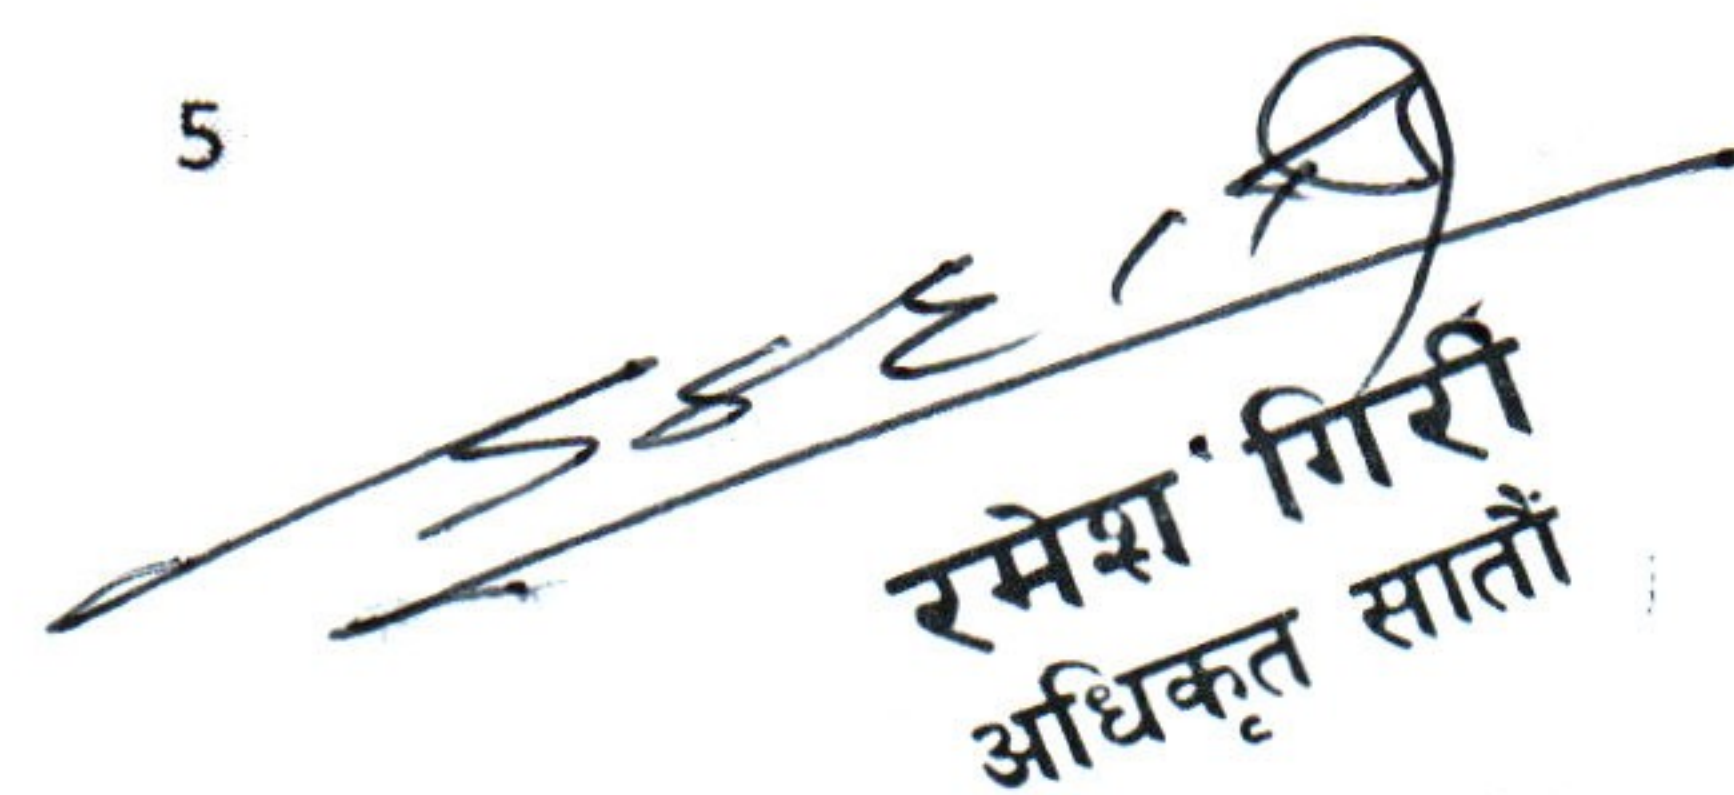 5
रमेश गिरी
अधिकृत सातौं